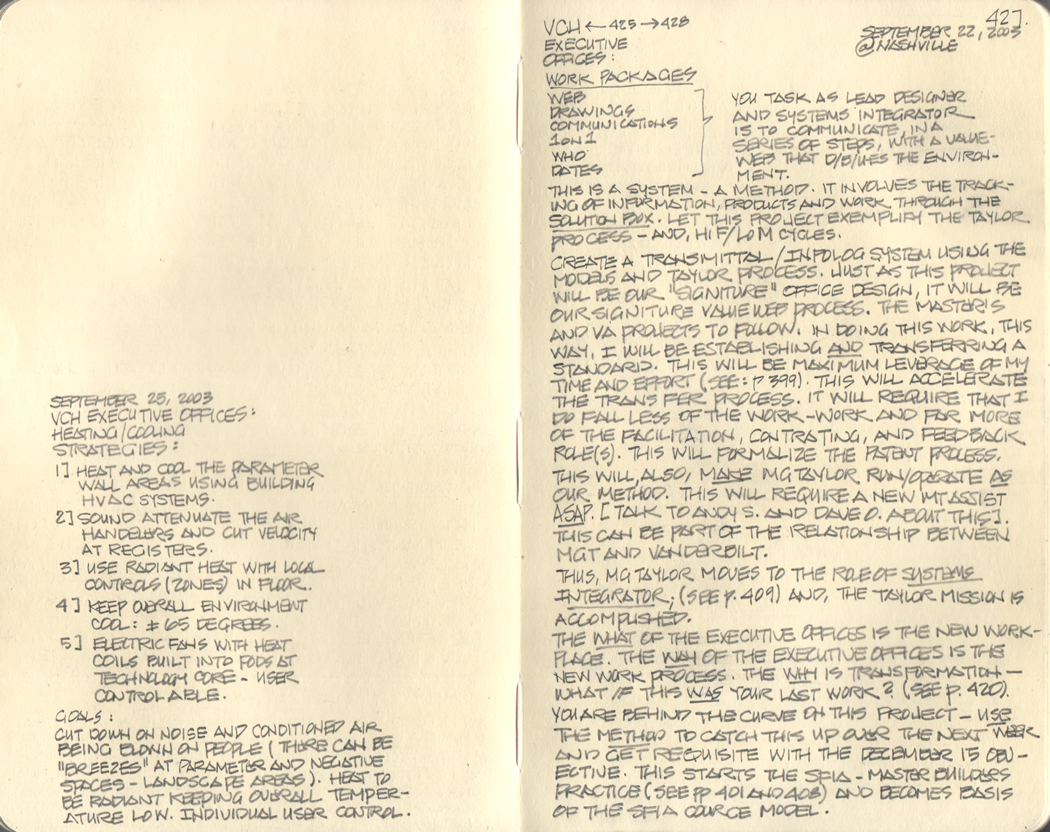 SEPTEMBER 25, 2003
VCH EXECUTIVE OFFICES:
HEATING/COOLING
STRATEGIES:
1] HEAT AND COOL THE PARAMETER
WALL AREAS USING BUILDING
HVAC SYSTEMS.
2] SOUND ATTENUATE THE AIR
HANDELERS AND CUT VELOCITY
AT REGISTERS.
3] USE RADIANT HEAT WITH LOCAL
CONTROLS (ZONES) IN FLOOR.
4] KEEP OVERALL ENVIRONMENT
COOL: ± 65 DEGREES.
5] ELECTRIC FANS WITH HEAT
COILS BUILT INTO PODS AT
TECHNOLOGY CORE - USER
CONTROLABLE.
GOALS:
CUT DOWN ON NOISE AND CONDITIONED AIR
BEING BLOWN ON PEOPLE (THERE CAN BE
"BREEZES" AT PARAMETER AND NEGATIVE
SPACES - LANDSCAPE AREAS). HEAT TO
BE RADIANT KEEPING OVERALL TEMPER-
ATURE LOW. INDIVIDUAL USER CONTROL.
427.
VCH ← 425 → 428
SEPTEMBER 22, 2003
EXECUTIVE
@NASHVILLE
OFFICES:
WORK PACKAGES
WEB
DRAWINGS
COMMUNICATIONS
1 ON 1
WHO
DATES
YOU TASK AS LEAD DESIGNER
AND SYSTEMS INTEGRATOR
IS TO COMMUNICATE, IN A
SERIES OF STEPS, WITH A VALUE-
WEB THAT D/B/UES THE ENVIRON-
MENT.
THIS IS A SYSTEM - A METHOD. IT INVOLVES THE TRACK-
ING OF INFORMATION, PRODUCTS AND WORK THROUGH THE
SOLUTION BOX. LET THIS PROJECT EXEMPLIFY THE TAYLOR
PROCESS - AND, HIF/LOM CYCLES.
CREATE A TRANSMITTAL/INFOLOG SYSTEM USING THE
MODELS AND TAYLOR PROCESS. JUST AS THIS PROJECT
WILL BE OUR "SIGNITURE" OFFICE DESIGN, IT WILL BE
OUR SIGNITURE VALUE WEB PROCESS. THE MASTER'S
AND VA PROJECTS TO FOLLOW. IN DOING THIS WORK, THIS
WAY, I WILL BE ESTABLISHING AND TRANSFERRING A
STANDARD. THIS WILL BE MAXIMUM LEVERAGE OF MY
TIME AND EFFORT (SEE: P 399). THIS WILL ACCELERATE
THE TRANSFER PROCESS. IT WILL REQUIRE THAT I
DO FALL LESS OF THE WORK-WORK AND FAR MORE
OF THE FACILITATION, CONTRATING, AND FEEDBACK
ROLE(S). THIS WILL FORMALIZE THE PATENT PROCESS.
THIS WILL, ALSO, MAKE MG TAYLOR RUN/OPERATE AS
OUR METHOD. THIS WILL REQUIRE A NEW MT ASSIST
ASAP. [TALK TO ANDY S. AND DAVE O. ABOUT THIS].
THIS CAN BE PART OF THE RELATIONSHIP BETWEEN
MGT AND VANDERBILT.
THUS, MG TAYLOR MOVES TO THE ROLE OF SYSTEMS
INTEGRATOR; (SEE P. 409) AND, THE TAYLOR MISSION IS
ACCOMPLISHED.
THE WHAT OF THE EXECUTIVE OFFICES IS THE NEW WORK-
PLACE. THE WAY OF THE EXECUTIVE OFFICES IS THE
NEW WORK PROCESS. THE WHY IS TRANSFORMATION -
WHAT IF THIS WAS YOUR LAST WORK? (SEE P. 420).
YOU ARE BEHIND THE CURVE ON THIS PROJECT - USE
THE METHOD TO CATCH THIS UP OVER THE NEXT WEEK
AND GET REQUISITE WITH THE DECEMBER 15 OBJ-
ECTIVE. THIS STARTS THE SFIA - MASTER BUILDERS
PRACTICE (SEE PP 401 AND 408) AND BECOMES BASIS
OF THE SFIA COURCE MODEL.